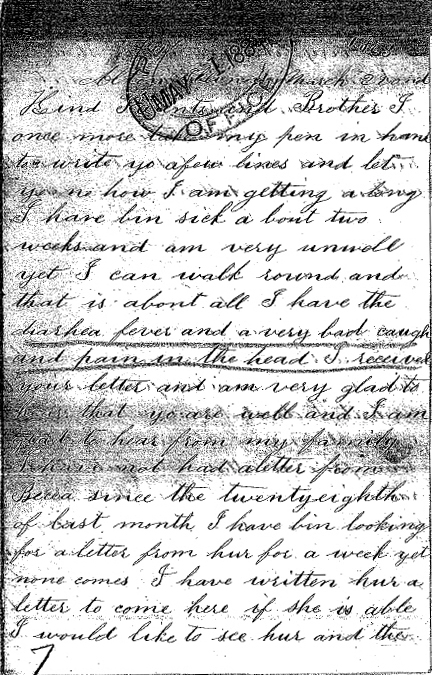 MAY 1 188
March 2nd
Kind Brother I
once more take my pen in hand
to write yo afew lines and let
yo no how I am getting a long
I have bin sick a bout two
weeks and am very unwell
yet I can walk round and
that is about all I have the
diarhea fever and a very bad caugh
and pain in the head I received
your letter and am very glad to
hear that yo are well and I am
glad to hear from my friends
I have not had aletter from
Becca since the twentyeighth
of last month I have bin looking
for a letter from hur for a week yet
none comes I have written hur a
letter to come here if she is able
I would like to see hur and the
7